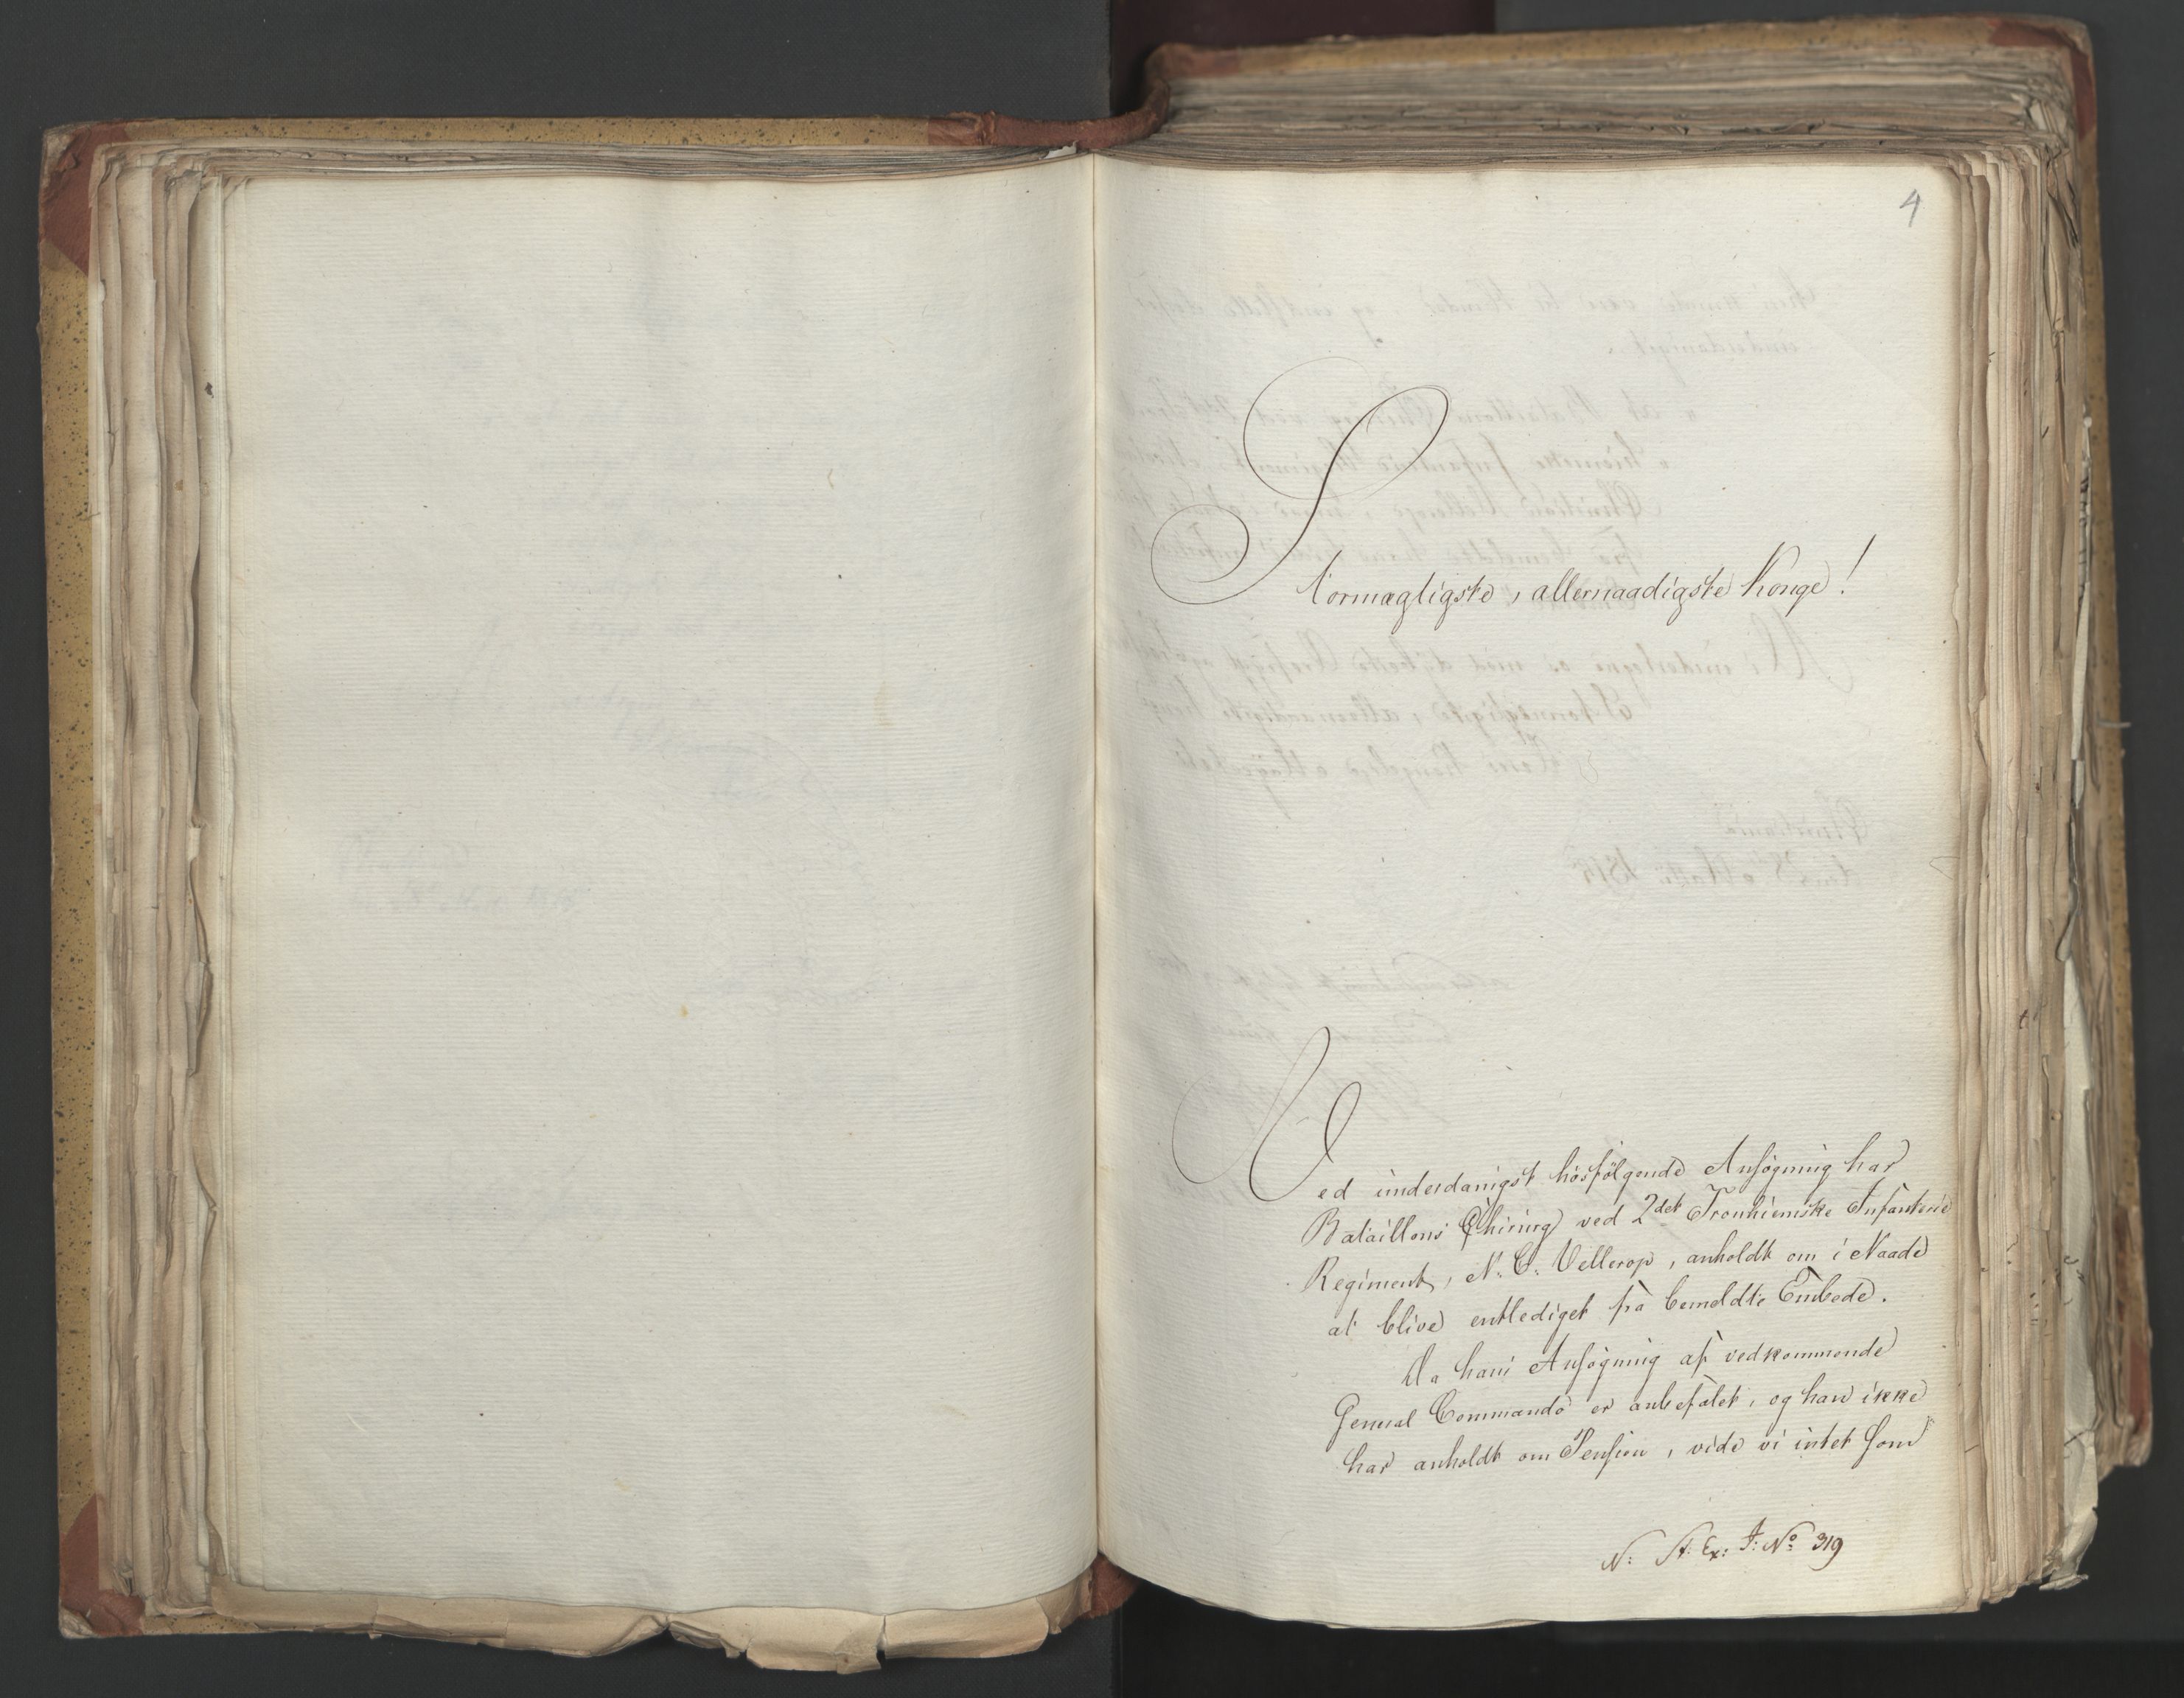 4
Stormægtigste, allernaadigste Konge!
Ved underdanigst hosfølgende Ansøgning har
Bataillons Chirurg ved 2det Tronhiemske Infanterie
Regiment, N: C: Vellerop, anholdt om i Naade
at blive entlediget fra bemeldte Embede.
Da hans Ansøgning af vedkommende
General Commando er anbefalet, og han ikke
har anholdt om Pension, vide vi intet som
N: St: Ex: J: No 319